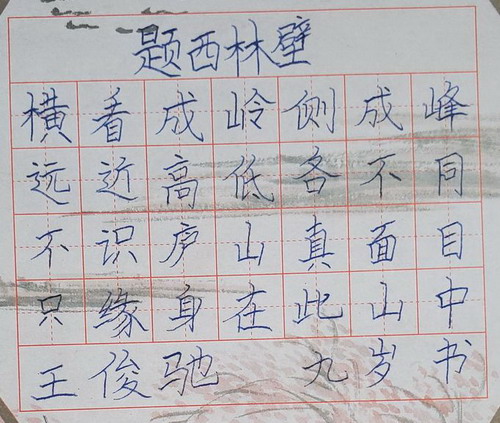 题西林壁
横看成岭侧成峰
远近高低各不同
不识庐山真面目
只缘身在此山中
王俊驰 九岁书